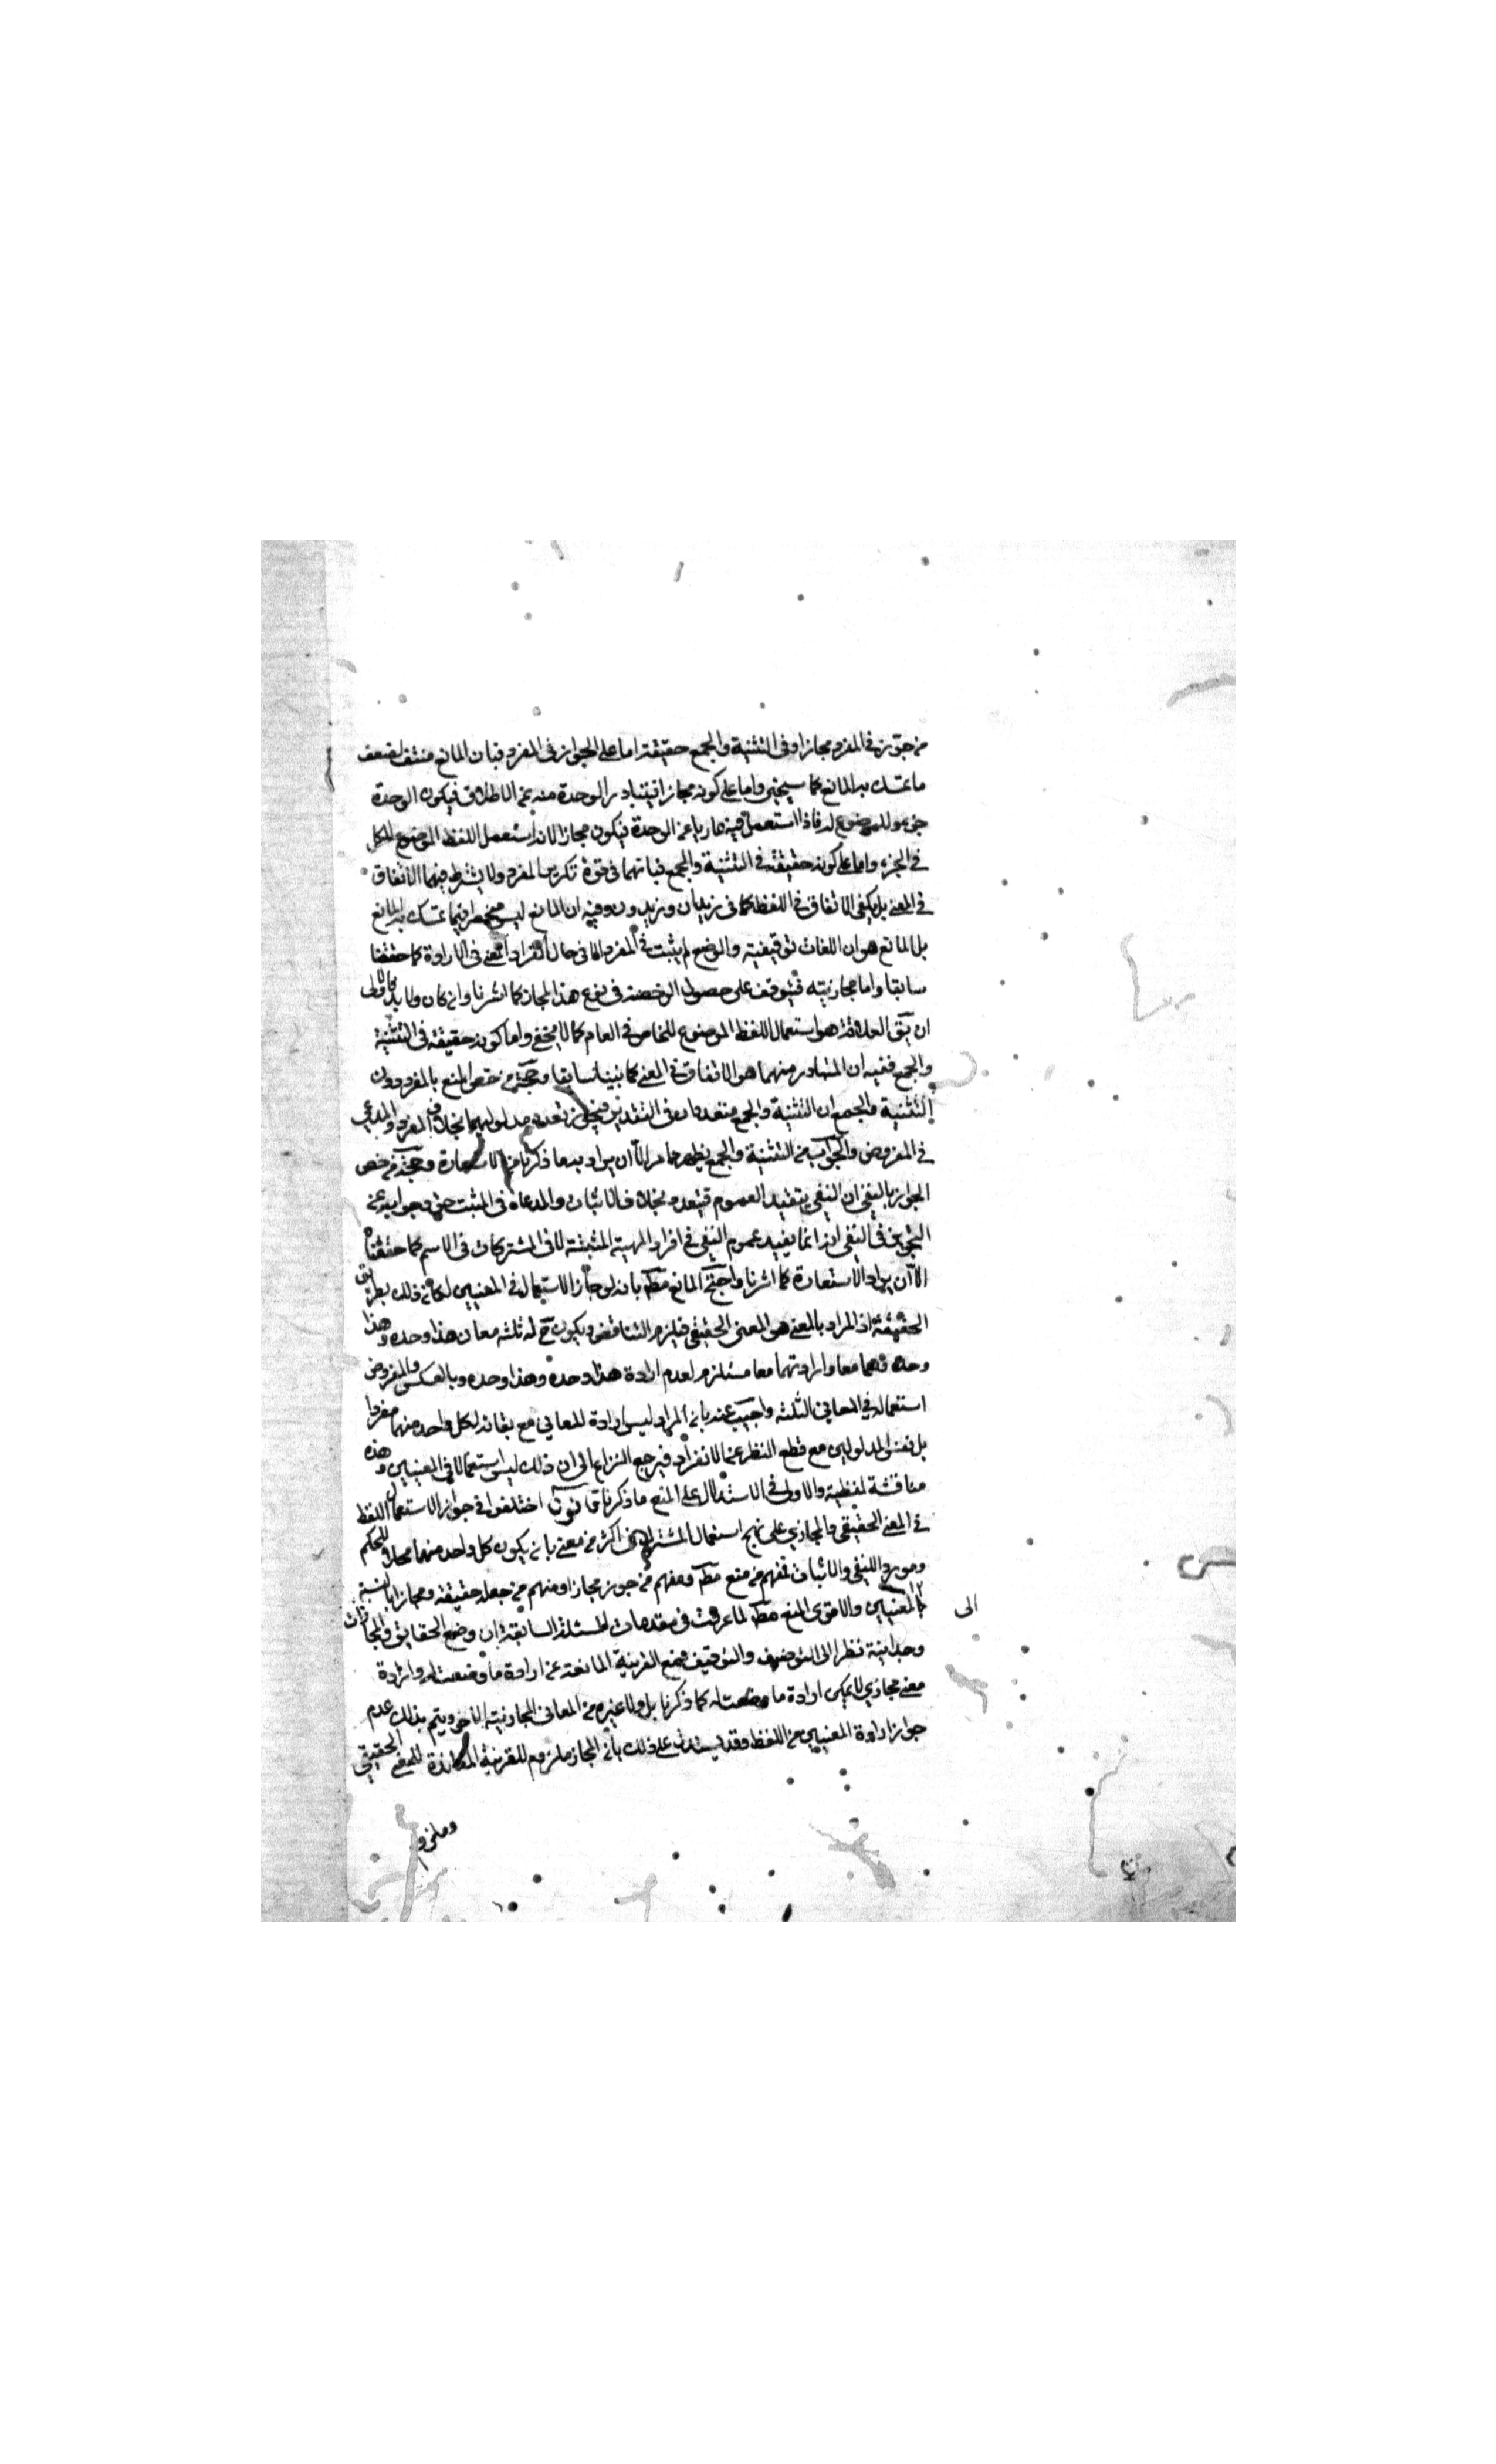 من جوزه في المفرد مجازا وفي التثنية والجمع حقيقة اما على الجواز في المفرد فبان المانع منتف لضعف
ما تمسك به المانع كما سيجئ واما على كونه مجازا فيتبادر الوحدة منه عند الاطلاق فيكون الوحدة
جزء للموضوع له فاذا استعمل فيه عاريا عن الوحدة فيكون مجازا لانه استعمل اللفظ الموضوع للكل
في الجزء واما على كونه حقيقة في التثنية والجمع فبانهما في قوة تكرير المفرد ولا يشترط فيهما الاتفاق
في المعنى بل يكفى الاتفاق في اللفظ كما في زيدان وزيدون وفيه ان المانع ليس منحصرا فيما تمسك به المانع
بل المانع هو ان اللغات توقيفية والوضع لم يثبت في المفرد الا في حال انفراد المعنى في الارادة كما حققنا
سابقا واما مجازيته فيتوقف على حصول الرخصة في نوع هذا المجاز كما اشرنا وان كان ولا بد فالاولى
ان يق العلاقة هو استعمال اللفظ الموضوع للخاص في العام كما لا يخفى واما كونه حقيقة في التثنية
والجمع ففيه ان المتبادر منهما هو الاتفاق في المعنى كما بينا سابقا وحجة من خص المنع بالمفرد دون
التثنية والجمع ان التثنية والجمع متعددان في التقدير فيجوز تعدد مدلوليهما بخلاف المفرد والمدعى
في المفروض والجواب عن التثنية والجمع يظهر مما مر الا ان يراد به ما ذكرنا من الاستعارة وحجة من خص
الجواز بالنفى ان النفى يفيد العموم فيتعدد بخلاف الاثبات والمدعاه في المثبت حق وجوابه عن
التجويز في النفى انه انما يفيد عموم النفى في افراد المهية المثبتة لا في المشتركات في الاسم كما حققناه
الا ان يراد الاستعارة كما اشرنا واحتج المانع مط بانه لو جاز الاستعمال في المعنيين لكان ذلك بطريق
الحقيقة اذ المراد بالمعنى هو المعنى الحقيقي فيلزم التناقض ويكون ح له ثلثه معان هذا وحده وهذا
وحده وهما معا وارادتهما معا مستلزم لعدم ارادة هذا وحده وهذا وحده وبالعكس والمفروض
استعماله في المعاني الثلثه واجيب عنه بان المراد ليس ارادة المعاني مع بقائه لكل واحد منهما مفردا
بل نفس المدلولين مع قطع النظر عن الانفراد فيرجع النزاع الى ان ذلك ليس استعمالا في المعنيين وهذه
مناقشة لفظية والاولى في الاستدلال على المنع ما ذكرنا قانون اختلفوا في جواز الاستعمال اللفظ
في المعنى الحقيقي والمجازي على نهج استعمال المشترك في اكثر من معنى بان يكون كل واحد منهما محلا للحكم
ومورد النفى والاثبات فمنهم من منع مط ومنهم من جوز مجازا ومنهم من جعله حقيقة ومجازا بالنسبة
المعنيين والاقوى المنع مط لما عرفت في مقدمات المسئلة السابقة ان وضع الحقايق والمجازات
الى
وحدانية نظرا الى التوظيف والتوقيف فمع القرينة المانعة عن ارادة ما وضعت له وارادة
معنى مجازي لا يمكن ارادة ما وضعت له كما ذكرنا بل ولا غيره من المعاني المجازية الاخر ويتم بذلك عدم
جواز ارادة المعنيين من اللفظ وقد يستدل على ذلك بان المجاز ملزوم للقرينة المعاندة للمعنى الحقيقي
وملزو